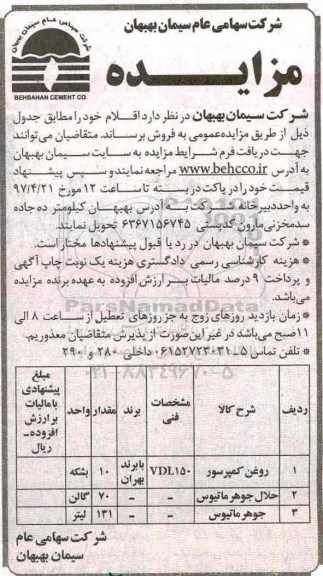 شرکت سهامی عام سیمان بهبهان
شرکت سهامی عام سیمان بهبهان
BEHBAHAN CEMENT CO.
مزایـــده
شرکت سیمان بهبهان در نظر دارد اقلام خود را مطابق جدول
ذیل از طریق مزایده عمومی به فروش برساند. متقاضیان می‌توانند
جهت دریافت فرم شرایط مزایده به سایت سیمان بهبهان
به آدرس www.behcco.ir مراجعه نمایند و سپس پیشنهاد
قیمت خود را در پاکت در بسته تا ساعت ۱۲ مورخ ۹۷/۴/۲۱
به واحد دبیرخانه شرکت به آدرس بهبهان کیلومتر ده جاده
سد مخزنی مارون کدپستی ۶۳۶۷۱۵۶۷۴۵ تحویل نمایند.
* شرکت سیمان بهبهان در رد یا قبول پیشنهادها مختار است.
* هزینه کارشناسی رسمی دادگستری هزینه یک نوبت چاپ آگهی
و پرداخت ۹ درصد مالیات بر ارزش افزوده به عهده برنده مزایده
می‌باشد.
* زمان بازدید روزهای زوج به جز روزهای تعطیل از ساعت ۸ الی
۱۱ صبح می‌باشد در غیر این صورت از پذیرش متقاضیان معذوریم.
* تلفن تماس ۵-۰۶۱۵۲۷۲۳۰۳۱ داخلی ۲۸۰ و ۲۹۰
ParsNamadData
۰۲۱-۸۸۳۴۹۶۷۰-۵
ردیف شرح کالا مشخصات فنی برند مقدار واحد مبلغ پیشنهادی با مالیات بر ارزش افزوده - ریال
۱ روغن کمپرسور VDL۱۵۰ با برند بهران ۱۰ بشکه
۲ حلال جوهر ماتیوس - - ۷۰ گالن
۳ جوهر ماتیوس - - ۱۳۱ لیتر
شرکت سهامی عام
سیمان بهبهان